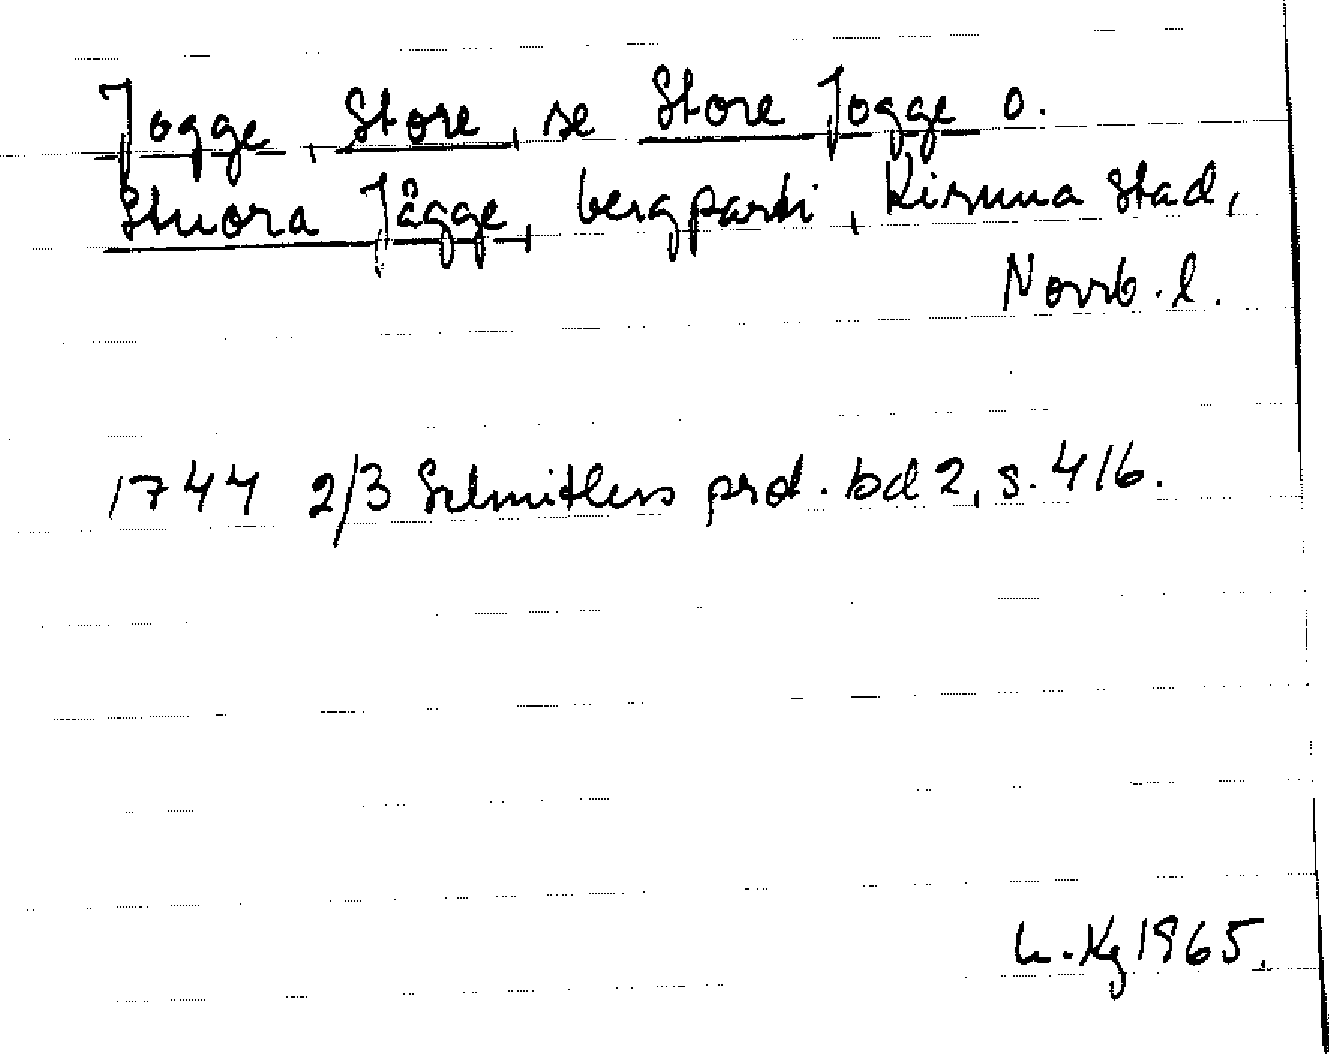 Jogge, Store, se Store Jogge o.
Stuora Jågge, bergparti, Kiruna stad,
Norrb. l.
1744 2/3 Schnitlers prot. bd 2, s. 416.
h. Kg 1965.